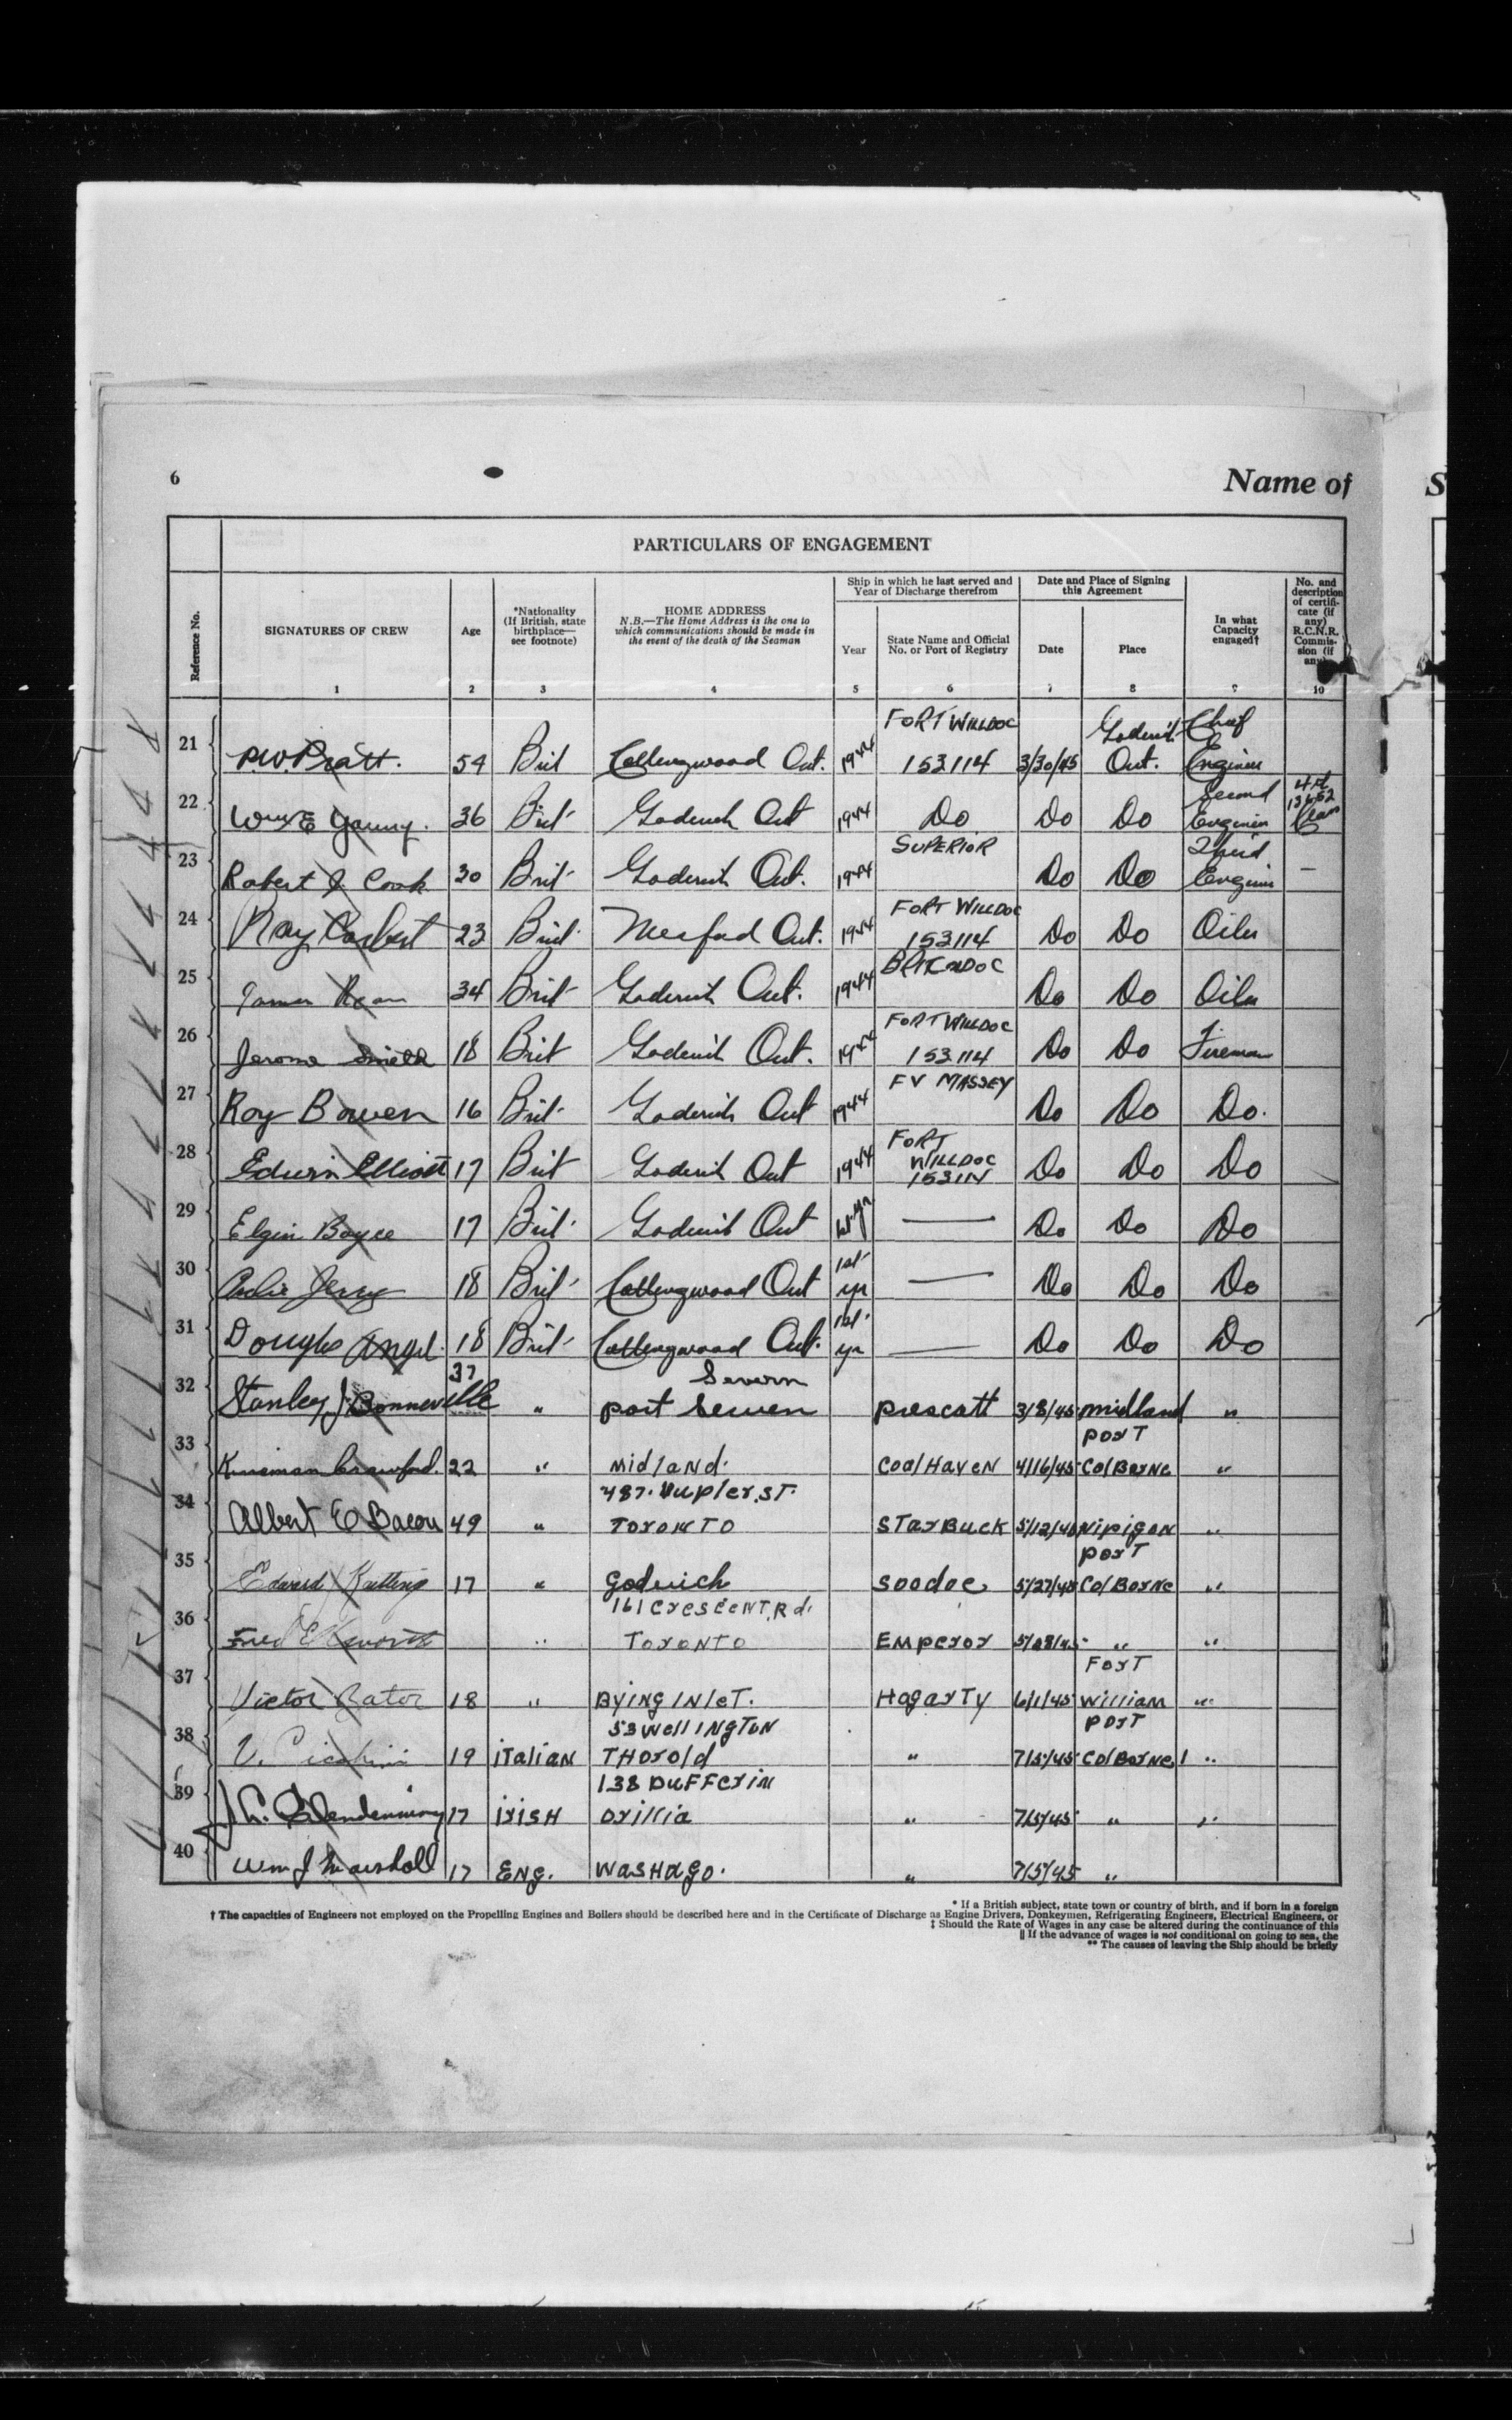 6
Name of
S
PARTICULARS OF ENGAGEMENT
Reference No.
SIGNATURES OF CREW
Age
*Nationality
(If British, state
birthplace—
see footnote)
HOME ADDRESS
N.B.—The Home Address is the one to
which communications should be made in
the event of the death of the Seaman
Ship in which he last served and
Year of Discharge therefrom
Year
State Name and Official
No. or Port of Registry
Date and Place of Signing
this Agreement
Date
Place
In what
Capacity
engaged†
No. and
description
of certifi-
cate (if
any)
R.C.N.R.
Commis-
sion (if
any)
1 2 3 4 5 6 7 8 9 10
FORT WILLDOC Goderich Chief
21 P.W. Pratt. 54 Brit Collingwood Ont. 1944 153114 3/30/45 Ont. Engineer
Second
22 Wm E Young. 36 Brit Goderich Ont 1944 Do Do Do Engineer
SUPERIOR Third
23 Robert J. Cook 30 Brit Goderich Ont. 1944 Do Do Engineer —
FORT WILLDOC
24 Ray Corbert 23 Brit Meaford Ont. 1944 153114 Do Do Oiler
25 34 Brit Goderich Ont. 1944 Do Do Oiler
FORT WILLDOC
26 Jerome Smith 18 Brit Goderich Ont. 1944 153114 Do Do Fireman
FV MASSEY
27 Roy Bowen 16 Brit Goderich Ont 1944 Do Do Do.
FORT
WILLDOC
28 Edwin Elliott 17 Brit Goderich Ont 1944 153114 Do Do Do
29 Elgin Boyce 17 Brit Goderich Ont 1st yr — Do Do Do
1st
30 Jerry 18 Brit Collingwood Ont yr — Do Do Do
1st
31 Douglas Angel. 18 Brit Collingwood Ont. yr — Do Do Do
37 Severn
32 Stanley J Bonneville " port Severn prescott 3/8/45 midland "
porT
33 Crawford. 22 " midland. CoalHaven 4/16/45 ColBorne "
487. Dupler. ST.
34 Albert E Bacon 49 " ToronTo STarBuck 5/12/45 Nipigon "
porT
35 Edward 17 " Goderich Soodoc 5/27/45 ColBorne "
161 CresceNT. Rd.
36 Fred E " ToroNTo Emperor " "
ForT
37 Victor Rator 18 " Bying INleT. HagarTy 6/1/45 William "
53 WellINgToN porT
38 V. 19 iTaliaN THorold " 7/5/45 ColBorne "
138 DuFFeriN
39 Glendenning 17 irisH Orillia " 7/5/45 " "
40 Wm J Marshall 17 ENg. WasHago. " 7/5/45 "
* If a British subject, state town or country of birth, and if born in a foreign
† The capacities of Engineers not employed on the Propelling Engines and Boilers should be described here and in the Certificate of Discharge as Engine Drivers, Donkeymen, Refrigerating Engineers, Electrical Engineers, or
‡ Should the Rate of Wages in any case be altered during the continuance of this
|| If the advance of wages is not conditional on going to sea, the
** The causes of leaving the Ship should be briefly